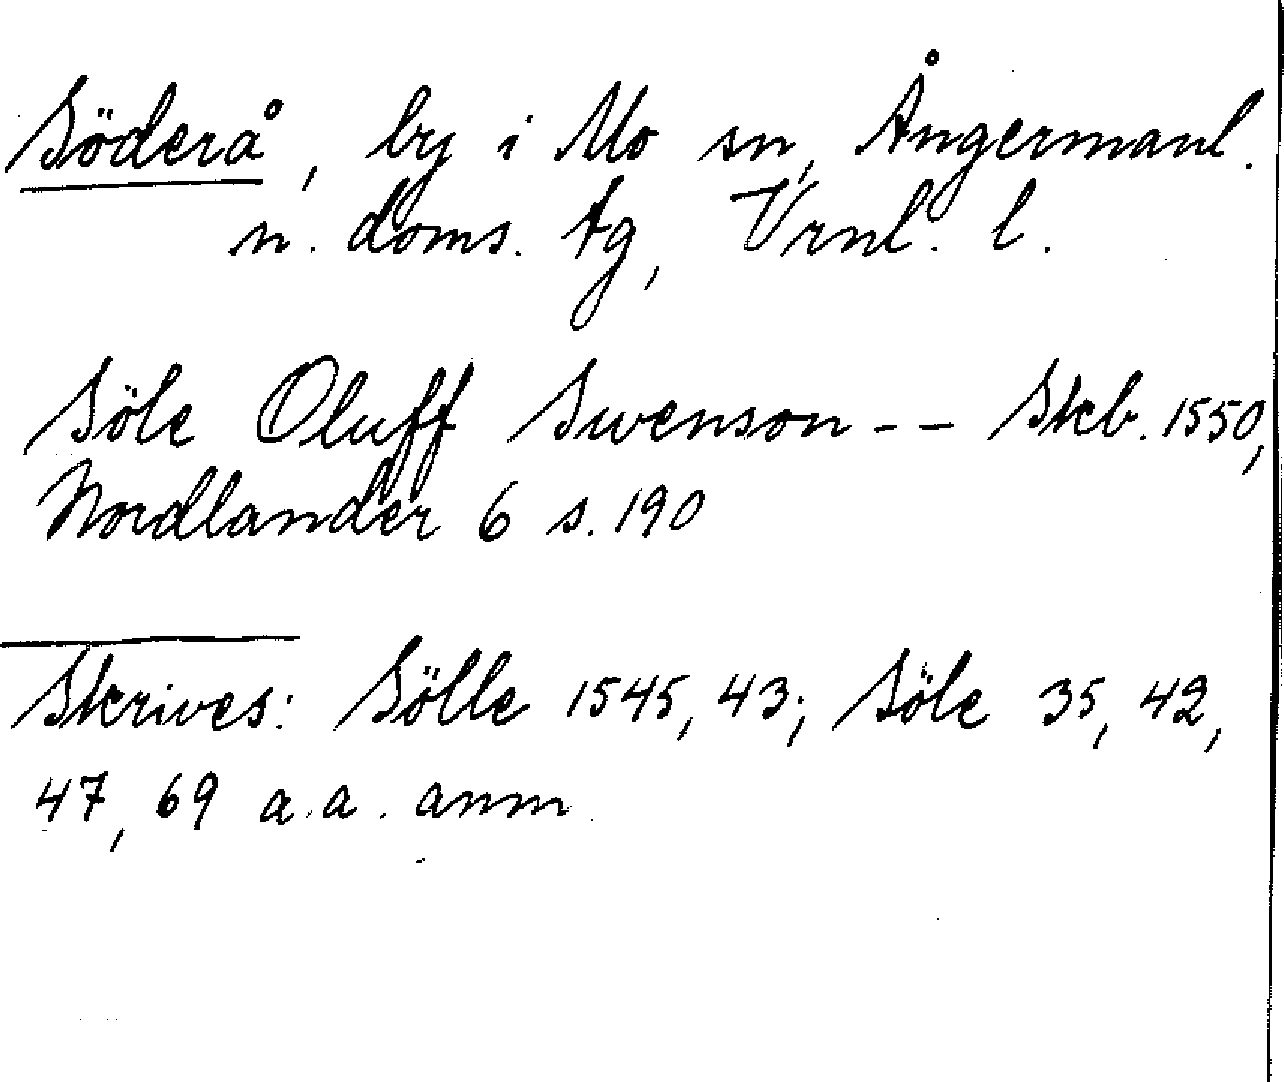 Söderå, by i Mo sn, Ångermanl.
n. doms. tg, Vrnl. l.
Söle Oluff Swenson -- Skb. 1550,
Nordlander 6 s. 190
Skrives: Sölle 1545, 43; Söle 35, 42,
47, 69 a.a. anm